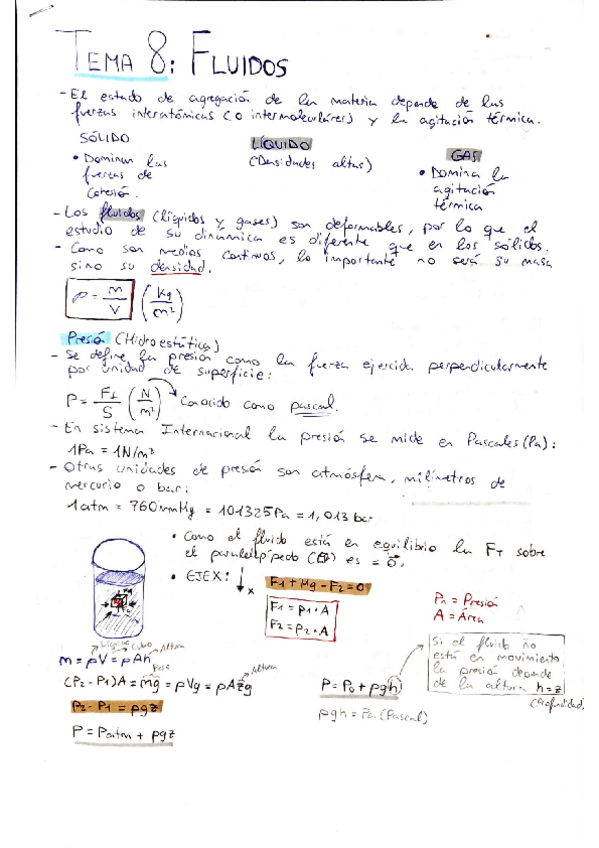 TEMA 8: FLUIDOS
- El estado de agregación de la materia depende de las
fuerzas interatómicas (o intermoleculares) y la agitación térmica.
SÓLIDO
• Dominan las
fuerzas de
cohesión.
LÍQUIDO
(Densidades altas)
GAS
• Domina la
agitación
térmica
- Los fluidos (líquidos y gases) son deformables, por lo que el
estudio de su dinámica es diferente que en los sólidos.
- Como son medios continuos, lo importante no será su masa
sino su densidad.
ρ = m/V (kg/m²)
Presión (Hidroestática)
- Se define la presión como la fuerza ejercida perpendicularmente
por unidad de superficie:
P = F⊥/S (N/m²) Conocido como pascal.
- En sistema Internacional la presión se mide en Pascales (Pa):
1Pa = 1N/m²
- Otras unidades de presión son atmósfera, milímetros de
mercurio o bar:
1atm = 760mmHg = 101325Pa = 1,013 bar
• Como el fluido está en equilibrio la F_T sobre
el paralelepípedo es = 0.
• EJEX: ↓x
F1 + Mg - F2 = 0
F1 = p1·A
F2 = p2·A
Pn = Presión
A = Área
Líquido Cubo Altura
m = ρV = ρAh
Base
(P2 - P1)A = mg = ρVg = ρAzg
Altura
P2 - P1 = ρgz
P = Patm + ρgz
P = P0 + ρgh
ρgh = Pa (Pascal)
Si el fluido no
está en movimiento
la presión depende
de la altura h = z
(Profundidad)